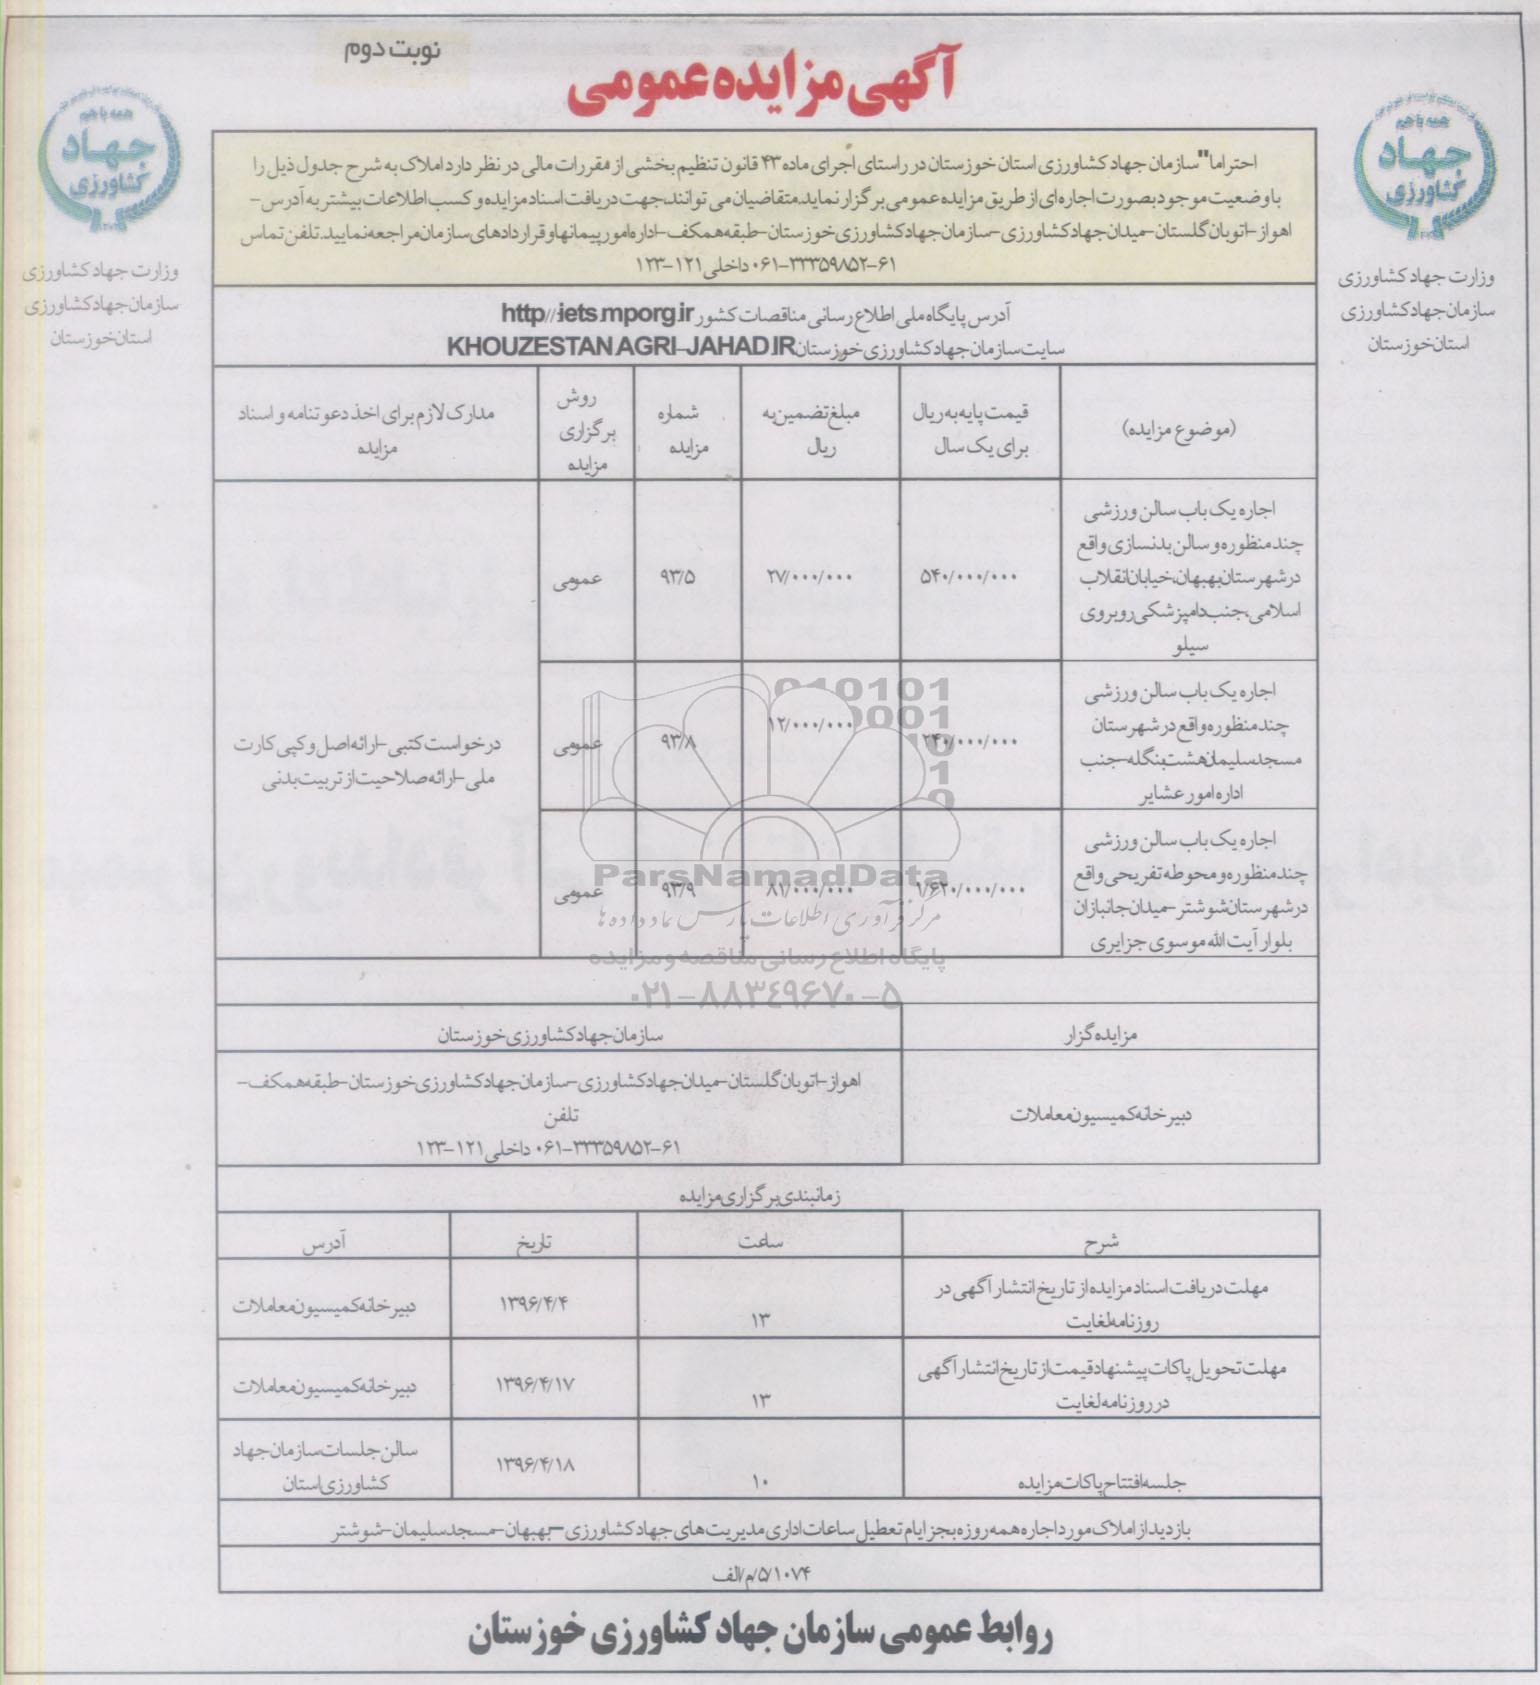 نوبت دوم
آگهی مزایده عمومی
همه با هم
جهاد
کشاورزی
وزارت جهاد کشاورزی
سازمان جهاد کشاورزی
استان خوزستان
همه با هم
جهاد
کشاورزی
وزارت جهاد کشاورزی
سازمان جهاد کشاورزی
استان خوزستان
احتراما" سازمان جهاد کشاورزی استان خوزستان در راستای اجرای ماده ۴۳ قانون تنظیم بخشی از مقررات مالی در نظر دارد املاک به شرح جدول ذیل را
با وضعیت موجود بصورت اجاره ای از طریق مزایده عمومی برگزار نماید، متقاضیان می توانند، جهت دریافت اسناد مزایده و کسب اطلاعات بیشتر به آدرس -
اهواز - اتوبان گلستان - میدان جهاد کشاورزی - سازمان جهاد کشاورزی خوزستان - طبقه همکف - اداره امور پیمانها و قراردادهای سازمان مراجعه نمایید. تلفن تماس
۰۶۱-۳۳۳۵۹۸۵۲-۶۱ داخلی ۱۲۱-۱۲۳
آدرس پایگاه ملی اطلاع رسانی مناقصات کشور http//:iets.mporg.ir
سایت سازمان جهاد کشاورزی خوزستان KHOUZESTAN.AGRI-JAHAD.IR
(موضوع مزایده)
قیمت پایه به ریال
برای یک سال
مبلغ تضمین به
ریال
شماره
مزایده
روش
برگزاری
مزایده
مدارک لازم برای اخذ دعوتنامه و اسناد
مزایده
اجاره یک باب سالن ورزشی
چند منظوره و سالن بدنسازی واقع
در شهرستان بهبهان، خیابان انقلاب
اسلامی، جنب دامپزشکی روبروی
سیلو
۵۴۰/۰۰۰/۰۰۰
۲۷/۰۰۰/۰۰۰
۹۳/۵
عمومی
اجاره یک باب سالن ورزشی
چند منظوره واقع در شهرستان
مسجد سلیمان هشت بنگله - جنب
اداره امور عشایر
۲۴۰/۰۰۰/۰۰۰
۱۲/۰۰۰/۰۰۰
۹۳/۸
عمومی
درخواست کتبی - ارائه اصل و کپی کارت
ملی - ارائه صلاحیت از تربیت بدنی
اجاره یک باب سالن ورزشی
چند منظوره و محوطه تفریحی واقع
در شهرستان شوشتر - میدان جانبازان
بلوار آیت الله موسوی جزایری
۱/۶۲۰/۰۰۰/۰۰۰
۸۱/۰۰۰/۰۰۰
۹۳/۹
عمومی
ParsNamadData
مرکز فرآوری اطلاعات پارس نماد داده ها
پایگاه اطلاع رسانی مناقصه و مزایده
۰۲۱-۸۸۳۴۹۶۷۰-۵
مزایده گزار
سازمان جهاد کشاورزی خوزستان
دبیرخانه کمیسیون معاملات
اهواز - اتوبان گلستان - میدان جهاد کشاورزی - سازمان جهاد کشاورزی خوزستان - طبقه همکف -
تلفن
۰۶۱-۳۳۳۵۹۸۵۲-۶۱ داخلی ۱۲۱-۱۲۳
زمانبندی برگزاری مزایده
شرح
ساعت
تاریخ
آدرس
مهلت دریافت اسناد مزایده از تاریخ انتشار آگهی در
روزنامه لغایت
۱۳
۱۳۹۶/۴/۴
دبیرخانه کمیسیون معاملات
مهلت تحویل پاکات پیشنهاد قیمت از تاریخ انتشار آگهی
در روزنامه لغایت
۱۳
۱۳۹۶/۴/۱۷
دبیرخانه کمیسیون معاملات
جلسه افتتاح پاکات مزایده
۱۰
۱۳۹۶/۴/۱۸
سالن جلسات سازمان جهاد
کشاورزی استان
بازدید از املاک مورد اجاره همه روزه بجز ایام تعطیل ساعات اداری مدیریت های جهاد کشاورزی - بهبهان - مسجد سلیمان - شوشتر
۵/۱۰۷۴/م/الف
روابط عمومی سازمان جهاد کشاورزی خوزستان